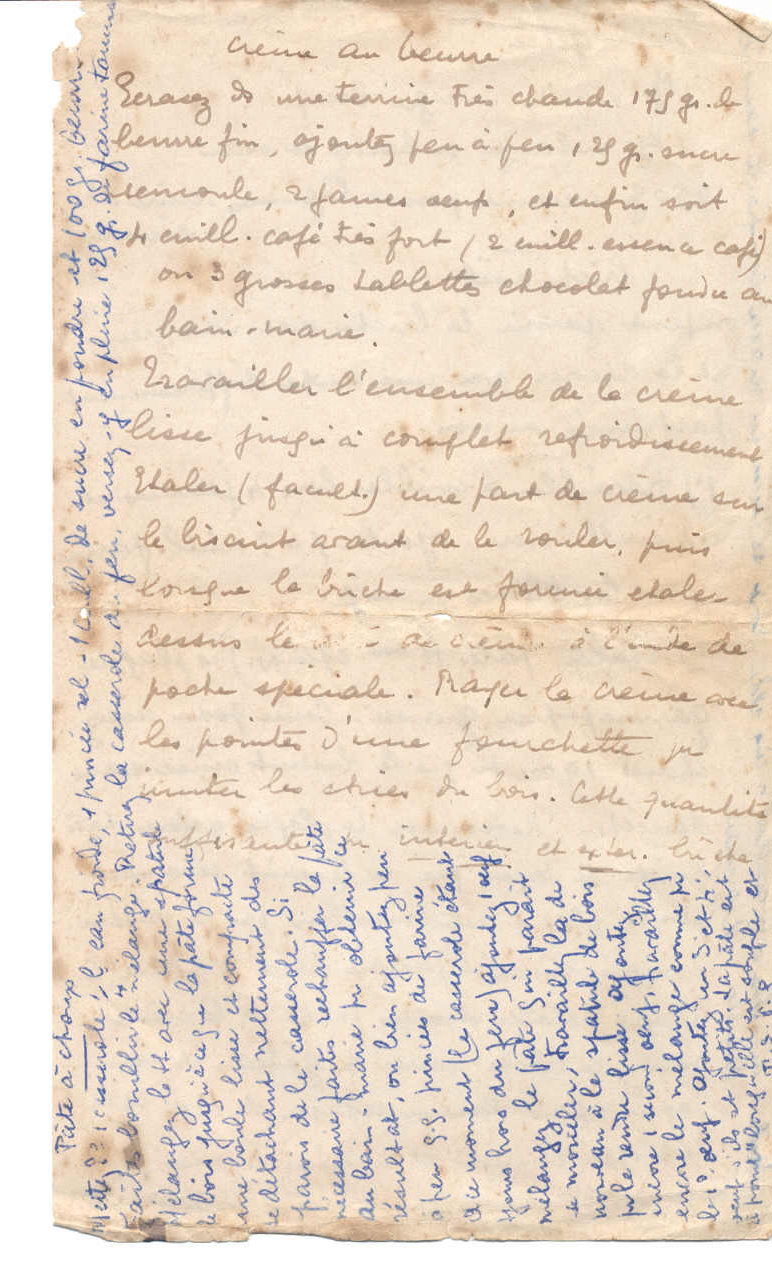 crème au beurre
Ecrasez ds une terrine très chaude 175 gr. de
beurre fin, ajoutez peu à peu 125 g. sucre
semoule, 2 jaunes oeufs, et enfin soit
4 cuill. café très fort (2 cuill. essence café)
ou 3 grosses tablettes chocolat fondu au
bain-marie.
Travailler l'ensemble de la crème
lisse jusqu'à complet refroidissement
Etaler (facult.) une part de crème sur
le biscuit avant de le rouler, puis
lorsque la bûche est formée etaler
dessus le de crème à l'aide de
poche spéciale. Rayer la crème avec
les pointes d'une fourchette pr
imiter les stries du bois. Cette quantité
suffisante pr interieur et exter. bûche
Pâte à choux
Mettez ds 1 casserole, eau froide, 1 pincée sel - 1 cuill. de sucre en poudre et 100 gr. beurre
Faites bouillir le mélange. Retirez la casserole du feu, versez-y en pluie 125 g. de farine tamisée
Mélangez le tt avec une spatule
de bois jusqu'à ce que la pâte forme
une boule lisse et compacte
se détachant nettement des
parois de la casserole. Si
nécessaire faites rechauffer la pâte
au bain-marie pr obtenir ce
résultat, ou bien ajoutez peu
à peu qq. pincées de farine
A ce moment (la casserole étant
tjours hors du feu) ajoutez 1 oeuf
mélangez la pâte qui paraît
se mouiller, travaillez la de
nouveau à la spatule de bois
pr la rendre lisse ajoutez
encore 1 second oeuf, travaillez
encore le mélange comme pr
le 1er oeuf. Ajoutez un 3 et 4,
sont petits. La pâte est
à point lorsqu'elle est souple et